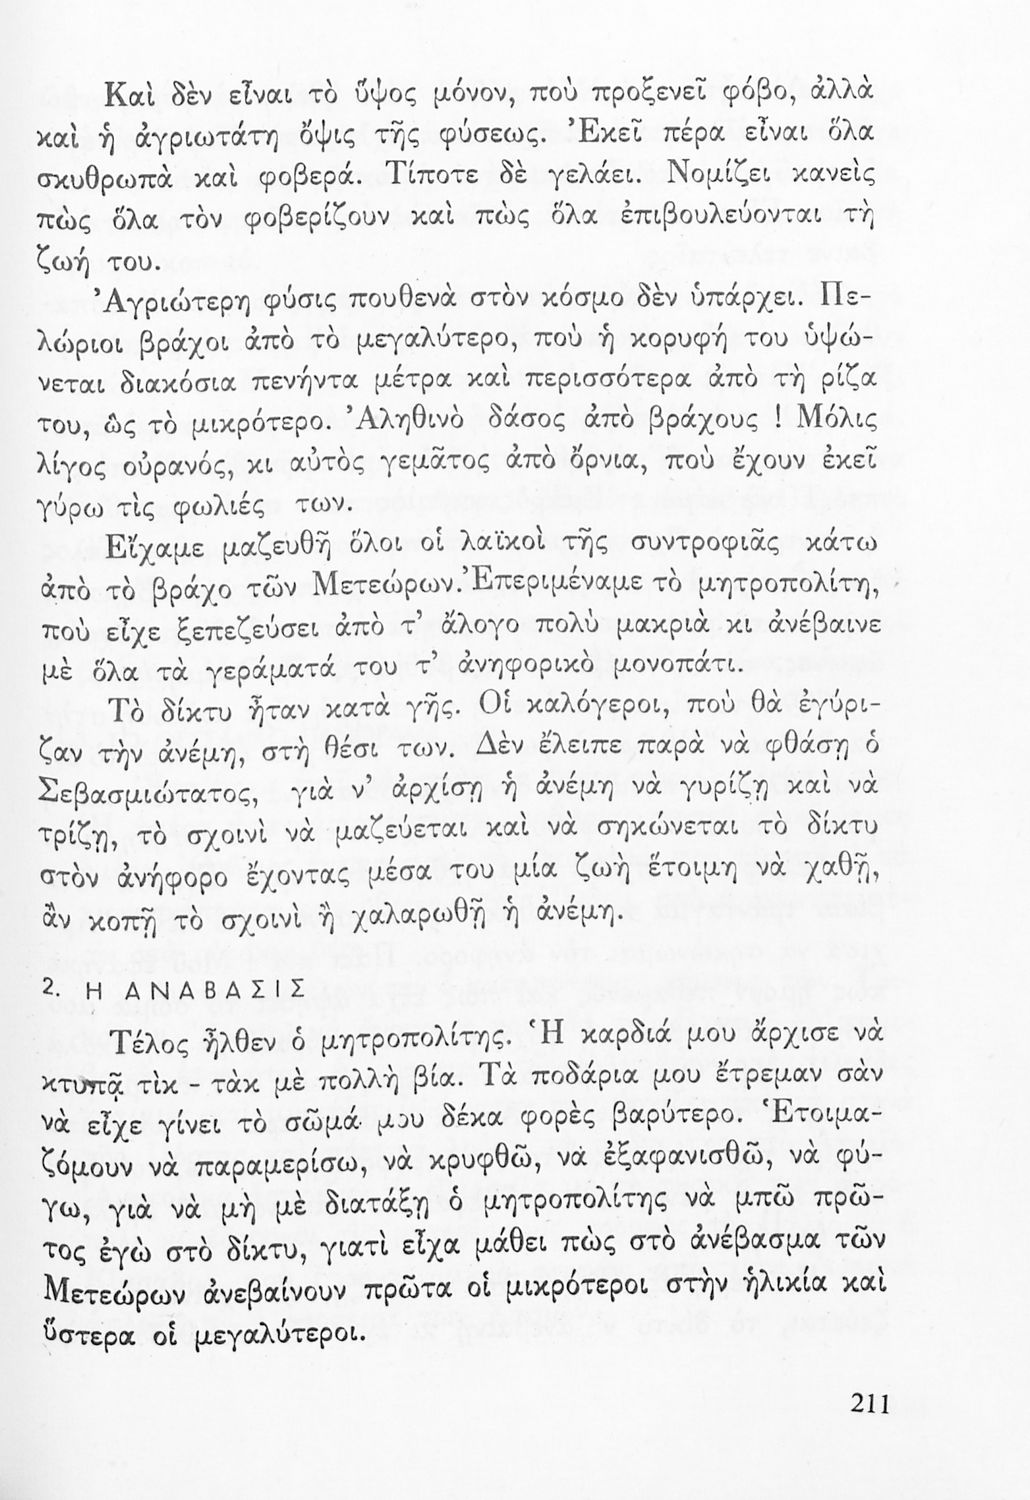 Καὶ δὲν εἶναι τὸ ὕψος μόνον, ποὺ προξενεῖ φόβο, ἀλλὰ
καὶ ἡ ἀγριωτάτη ὄψις τῆς φύσεως. Ἐκεῖ πέρα εἶναι ὅλα
σκυθρωπὰ καὶ φοβερά. Τίποτε δὲ γελάει. Νομίζει κανεὶς
πὼς ὅλα τὸν φοβερίζουν καὶ πὼς ὅλα ἐπιβουλεύονται τὴ
ζωή του.
Ἀγριώτερη φύσις πουθενὰ στὸν κόσμο δὲν ὑπάρχει. Πε-
λώριοι βράχοι ἀπὸ τὸ μεγαλύτερο, ποὺ ἡ κορυφή του ὑψώ-
νεται διακόσια πενήντα μέτρα καὶ περισσότερα ἀπὸ τὴ ρίζα
του, ὣς τὸ μικρότερο. Ἀληθινὸ δάσος ἀπὸ βράχους ! Μόλις
λίγος οὐρανός, κι αὐτὸς γεμᾶτος ἀπὸ ὄρνια, ποὺ ἔχουν ἐκεῖ
γύρω τὶς φωλιές των.
Εἴχαμε μαζευθῆ ὅλοι οἱ λαϊκοὶ τῆς συντροφιᾶς κάτω
ἀπὸ τὸ βράχο τῶν Μετεώρων. Ἐπεριμέναμε τὸ μητροπολίτη,
ποὺ εἶχε ξεπεζεύσει ἀπὸ τ’ ἄλογο πολὺ μακριὰ κι ἀνέβαινε
μὲ ὅλα τὰ γεράματά του τ’ ἀνηφορικὸ μονοπάτι.
Τὸ δίκτυ ἦταν κατὰ γῆς. Οἱ καλόγεροι, ποὺ θὰ ἐγύρι-
ζαν τὴν ἀνέμη, στὴ θέσι των. Δὲν ἔλειπε παρὰ νὰ φθάσῃ ὁ
Σεβασμιώτατος, γιὰ ν’ ἀρχίσῃ ἡ ἀνέμη νὰ γυρίζῃ καὶ νὰ
τρίζῃ, τὸ σχοινὶ νὰ μαζεύεται καὶ νὰ σηκώνεται τὸ δίκτυ
στὸν ἀνήφορο ἔχοντας μέσα του μία ζωὴ ἕτοιμη νὰ χαθῆ,
ἂν κοπῇ τὸ σχοινὶ ἢ χαλαρωθῇ ἡ ἀνέμη.
2. Η ΑΝΑΒΑΣΙΣ
Τέλος ἦλθεν ὁ μητροπολίτης. Ἡ καρδιά μου ἄρχισε νὰ
κτυπᾷ τὶκ - τὰκ μὲ πολλὴ βία. Τὰ ποδάρια μου ἔτρεμαν σὰν
νὰ εἶχε γίνει τὸ σῶμά μου δέκα φορὲς βαρύτερο. Ἑτοιμα-
ζόμουν νὰ παραμερίσω, νὰ κρυφθῶ, νὰ ἐξαφανισθῶ, νὰ φύ-
γω, γιὰ νὰ μὴ μὲ διατάξῃ ὁ μητροπολίτης νὰ μπῶ πρῶ-
τος ἐγὼ στὸ δίκτυ, γιατὶ εἶχα μάθει πὼς στὸ ἀνέβασμα τῶν
Μετεώρων ἀνεβαίνουν πρῶτα οἱ μικρότεροι στὴν ἡλικία καὶ
ὕστερα οἱ μεγαλύτεροι.
211